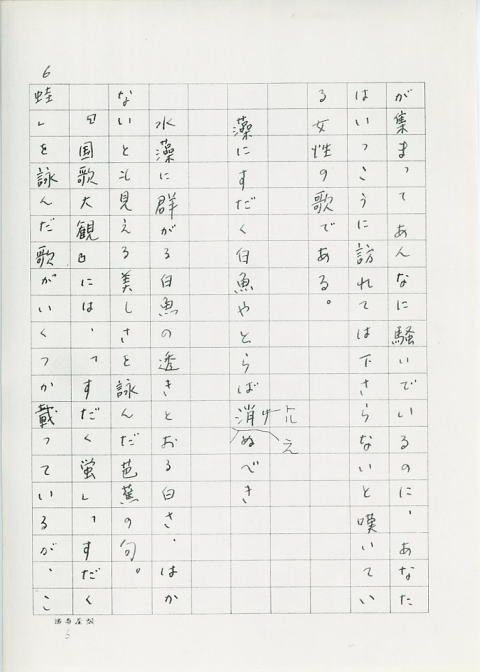 6
が集まってあんなに騒いでいるのに、あなた
はいっこうに訪れては下さらないと嘆いてい
る女性の歌である。
藻にすだく白魚やとらば消ぬべき
トル
え
水藻に群がる白魚の透きとおる白さ、はか
ないとも見える美しさを詠んだ芭蕉の句。
『国歌大観』には、「すだく蛍」「すだく
蛙」を詠んだ歌がいくつか載っているが、こ
6